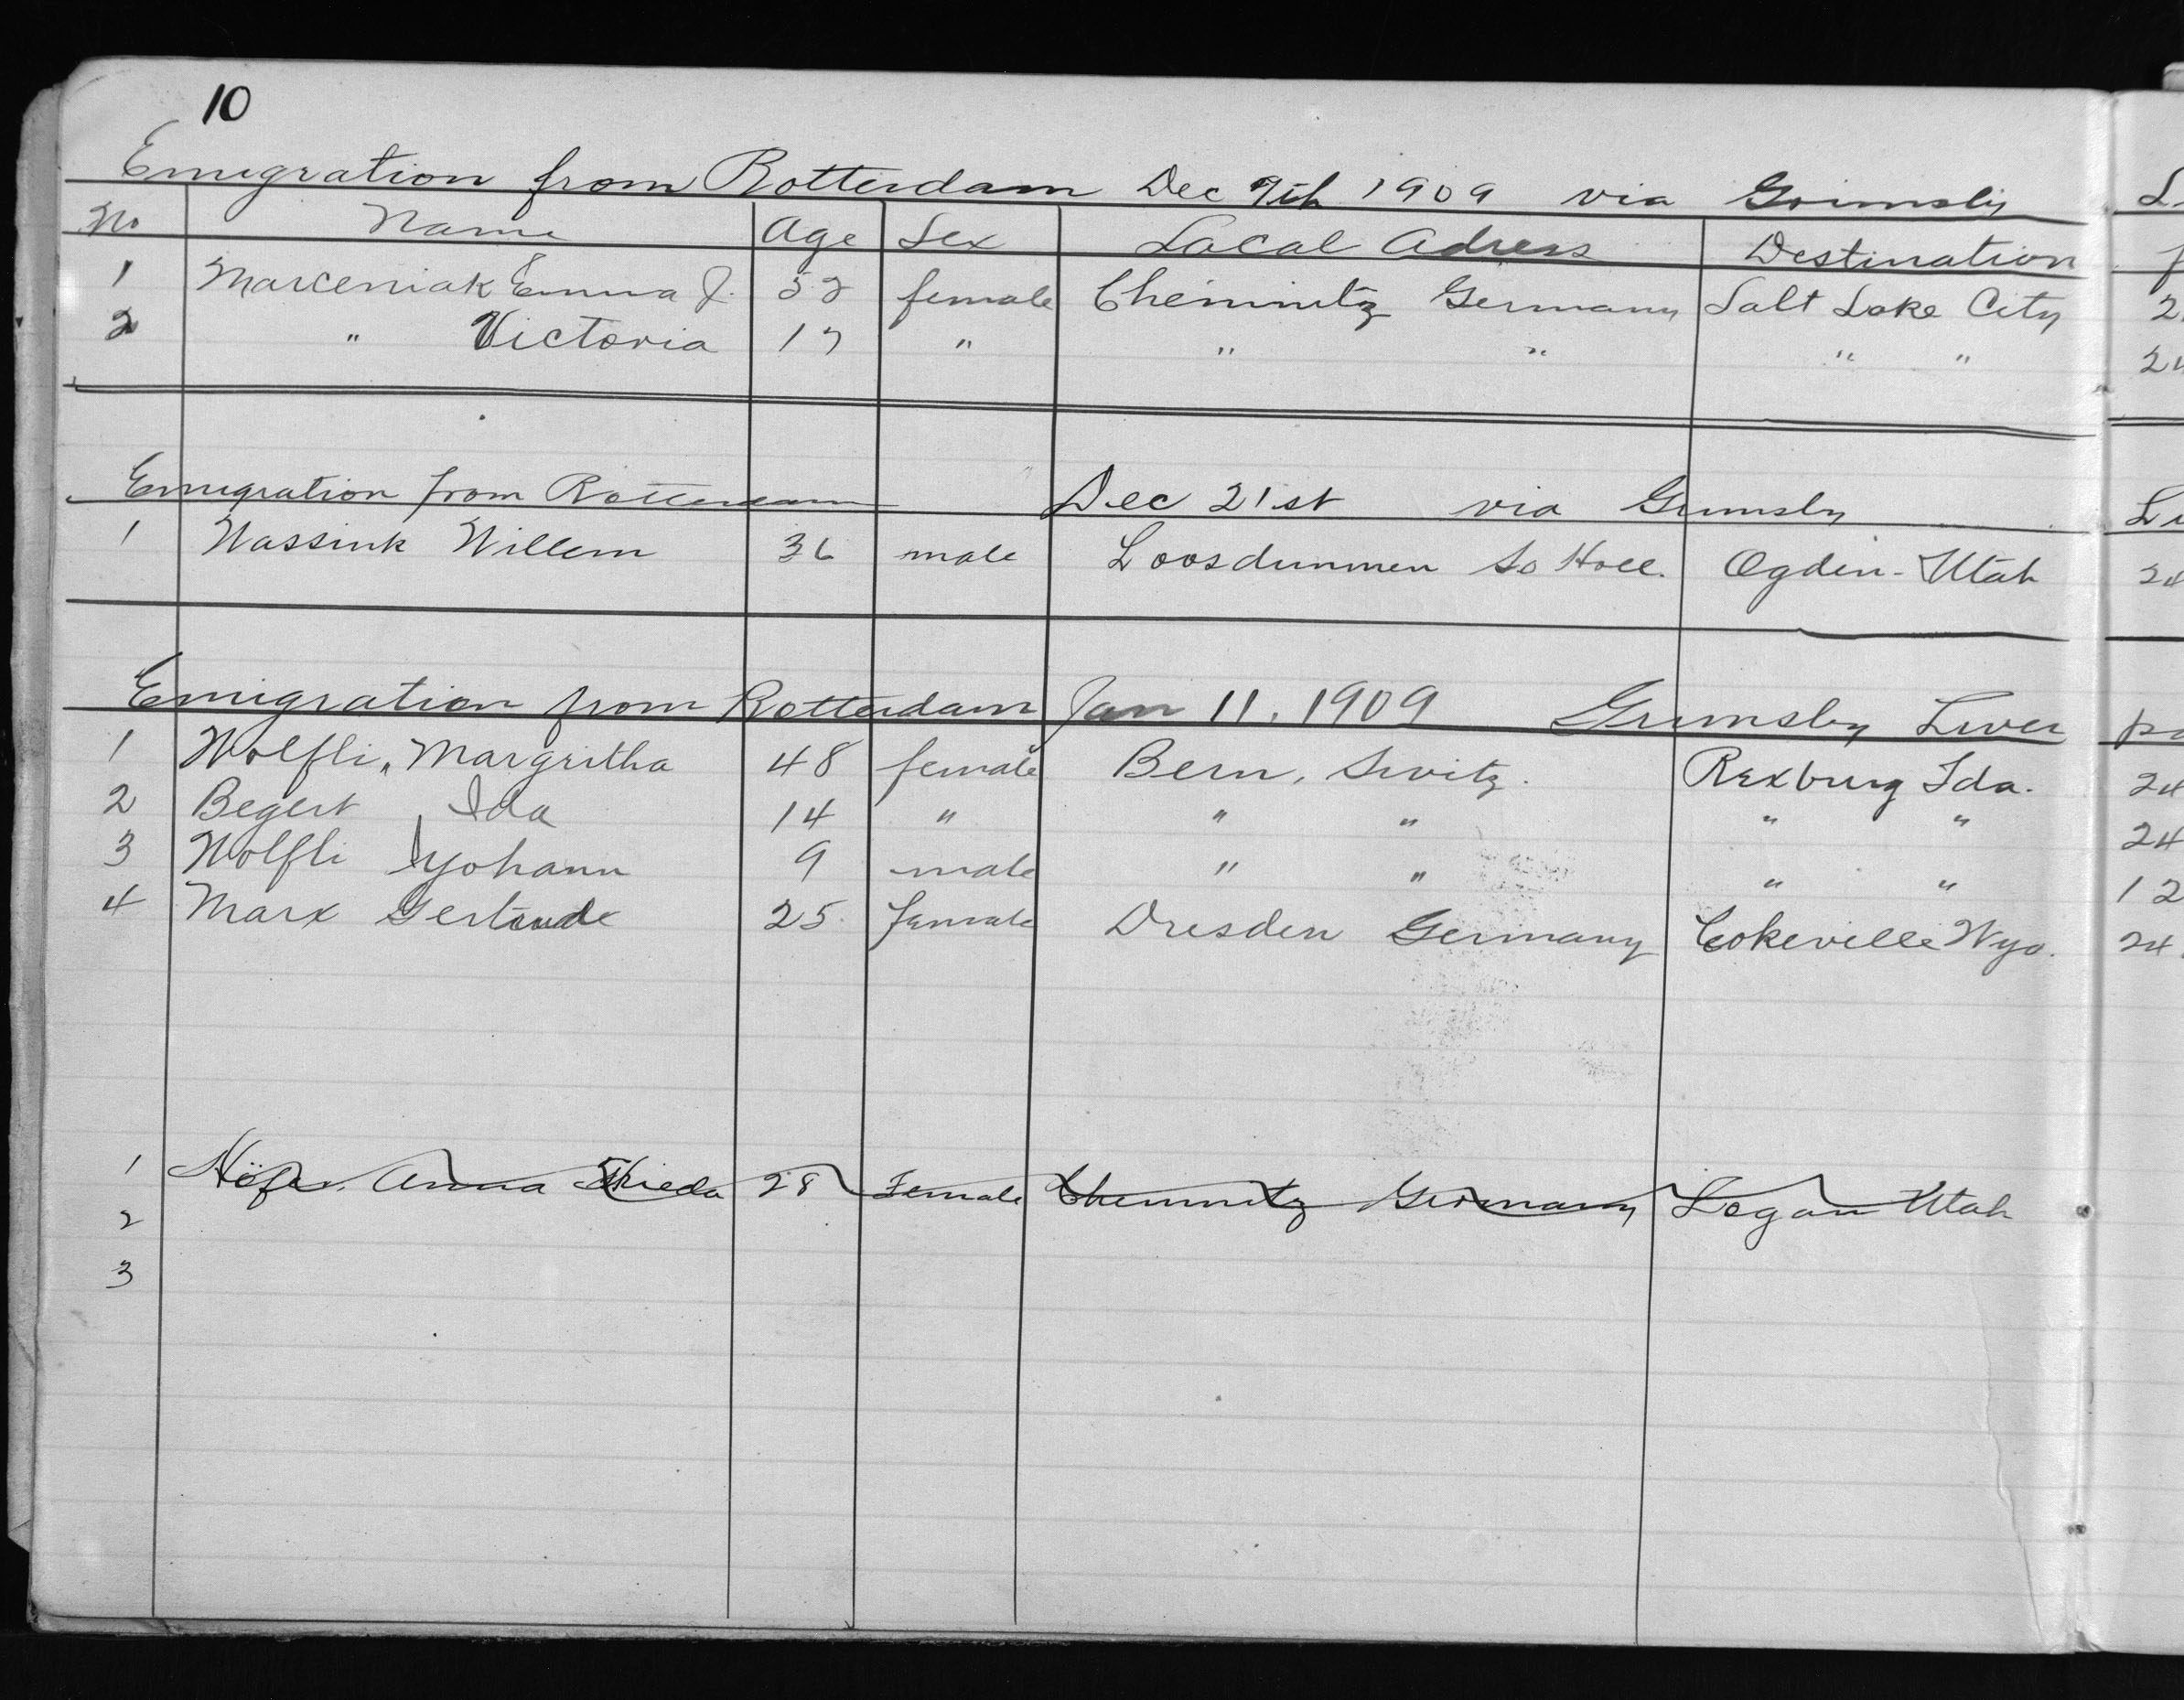 10
Emigration from Rotterdam Dec 9th 1909 via Grimsby
No Name Age Sex Local Adress Destination
1 Marceniak Emma J. 52 female Chemnitz Germany Salt Lake City
2 " Victoria 17 " " " " "
Emigration from Rotterdam Dec 21st via Grimsby
1 Wassink Willem 36 male Loosdunnen So Holl. Ogden - Utah
Emigration from Rotterdam Jan 11. 1909 Grimsby Liver
1 Wolfli, Margritha 48 female Bern, Switz. Rexburg Ida.
2 Begert Ida 14 " " " " "
3 Wolfli Yohann 9 male " " " "
4 Marx Gertrude 25 female Dresden Germany Cokeville Wyo.
1 Höfer Anna Frieda 28 Female Chemnitz Germany Logan Utah
2
3